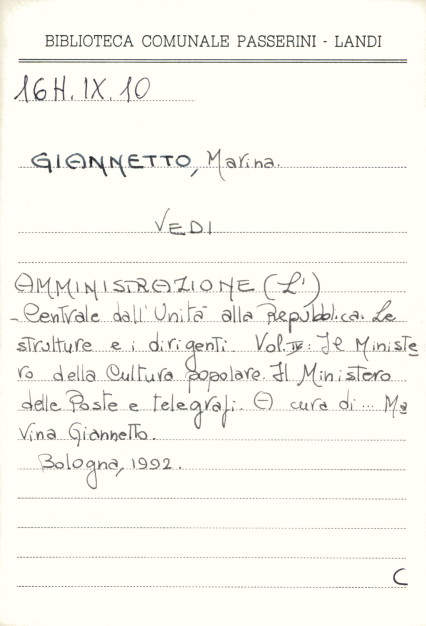 BIBLIOTECA COMUNALE PASSERINI - LANDI
16H.IX.10
GIANNETTO, Marina.
VEDI
AMMINISTRAZIONE (L')
- Centrale dall'Unità alla Repubblica. Le
strutture e i dirigenti. Vol. IV: Il Ministe
ro della Cultura popolare. Il Ministero
delle Poste e telegrafi. A cura di... Ma
rina Giannetto.
Bologna, 1992.
C